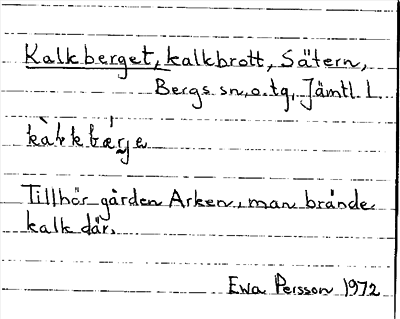 Kalkberget, kalkbrott, Sätern,
Bergs sn, o. tg, Jämtl. L.
Tillhör gården Arken, man brände
kalk där.
Ewa Persson 1972